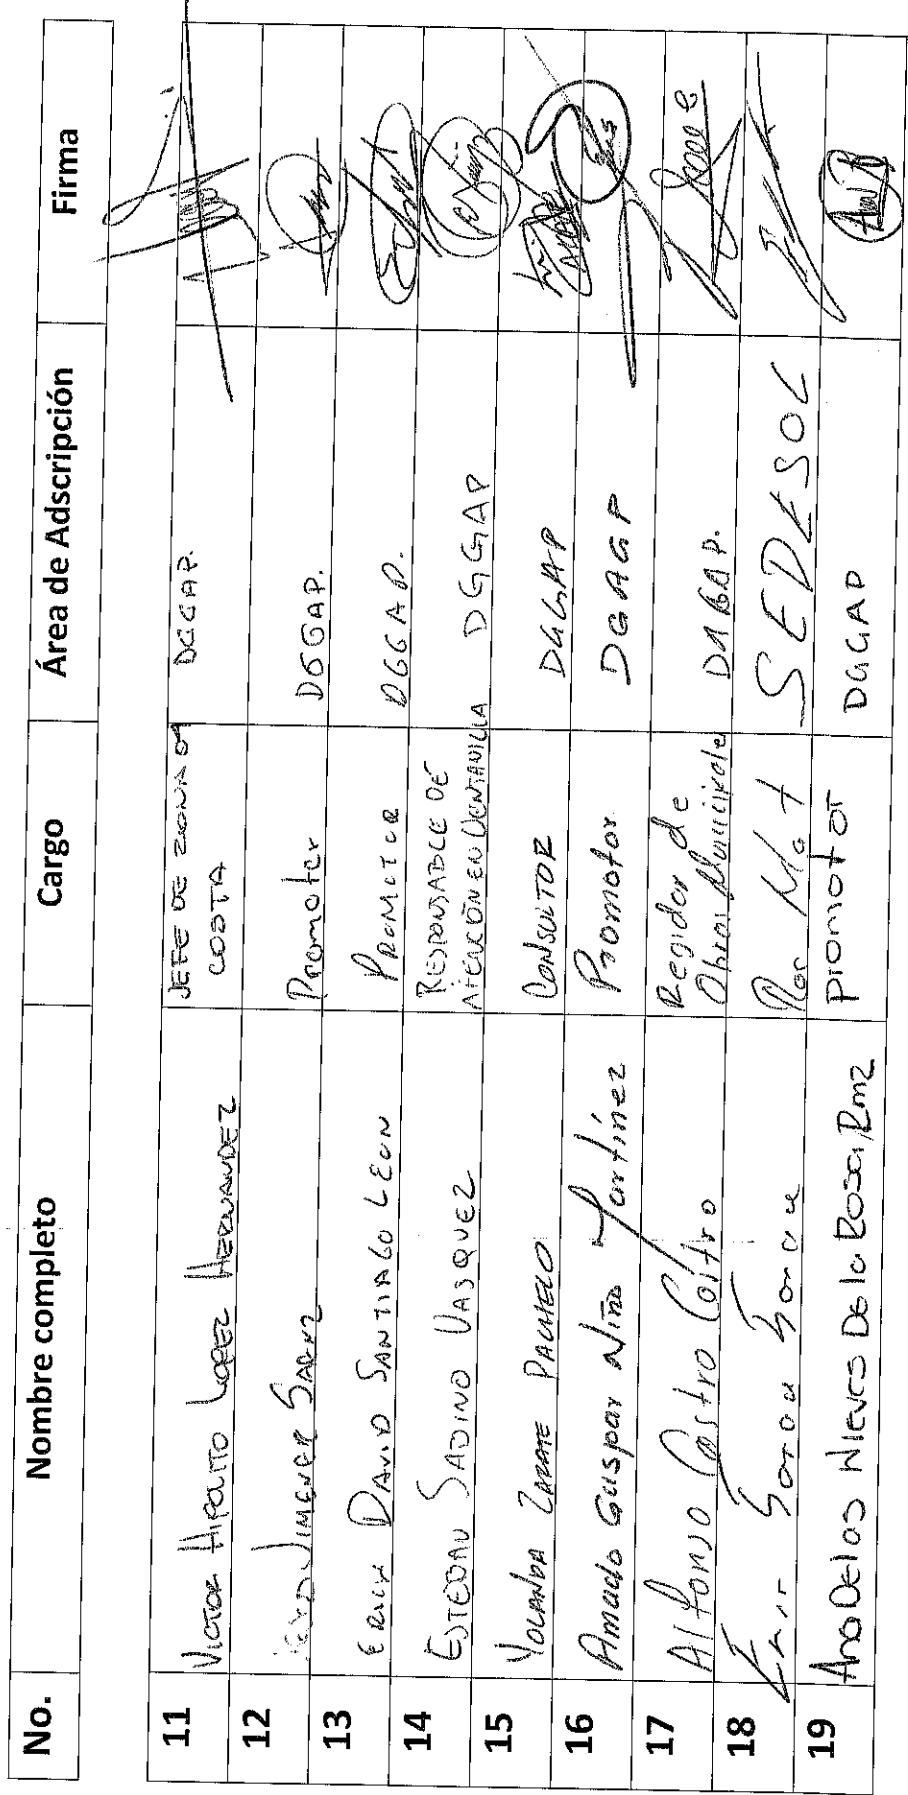 No. Nombre completo Cargo Área de Adscripción Firma
11 VICTOR HIPOLITO LOPEZ HERNANDEZ JEFE DE ZONA COSTA DGGAP.
12 JIMENEZ Promotor DGGAP.
13 ERICK DAVID SANTIAGO LEON PROMOTOR DGGAP.
14 ESTEBAN SADINO VASQUEZ RESPONSABLE DE
ATENCIÓN EN VENTANILLA DGGAP
15 YOLANDA ZARATE PACHECO CONSULTOR DGGAP
16 Amado Guspar Niño Martínez Promotor DGAGP
17 Alfonso Castro Castro Regidor de
Obras Municipales
18 SEDESOL
19 Ana De los Nieves De la Rosa Rmz promotor DGGAP